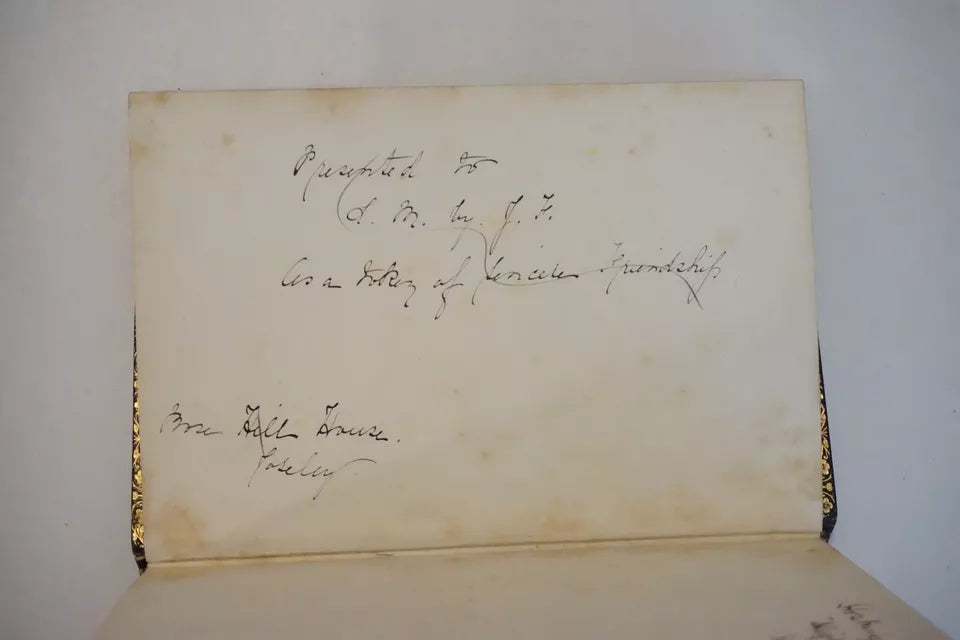 Presented to
S. M. by J. F.
As a token of sincere Friendship
Hill House.